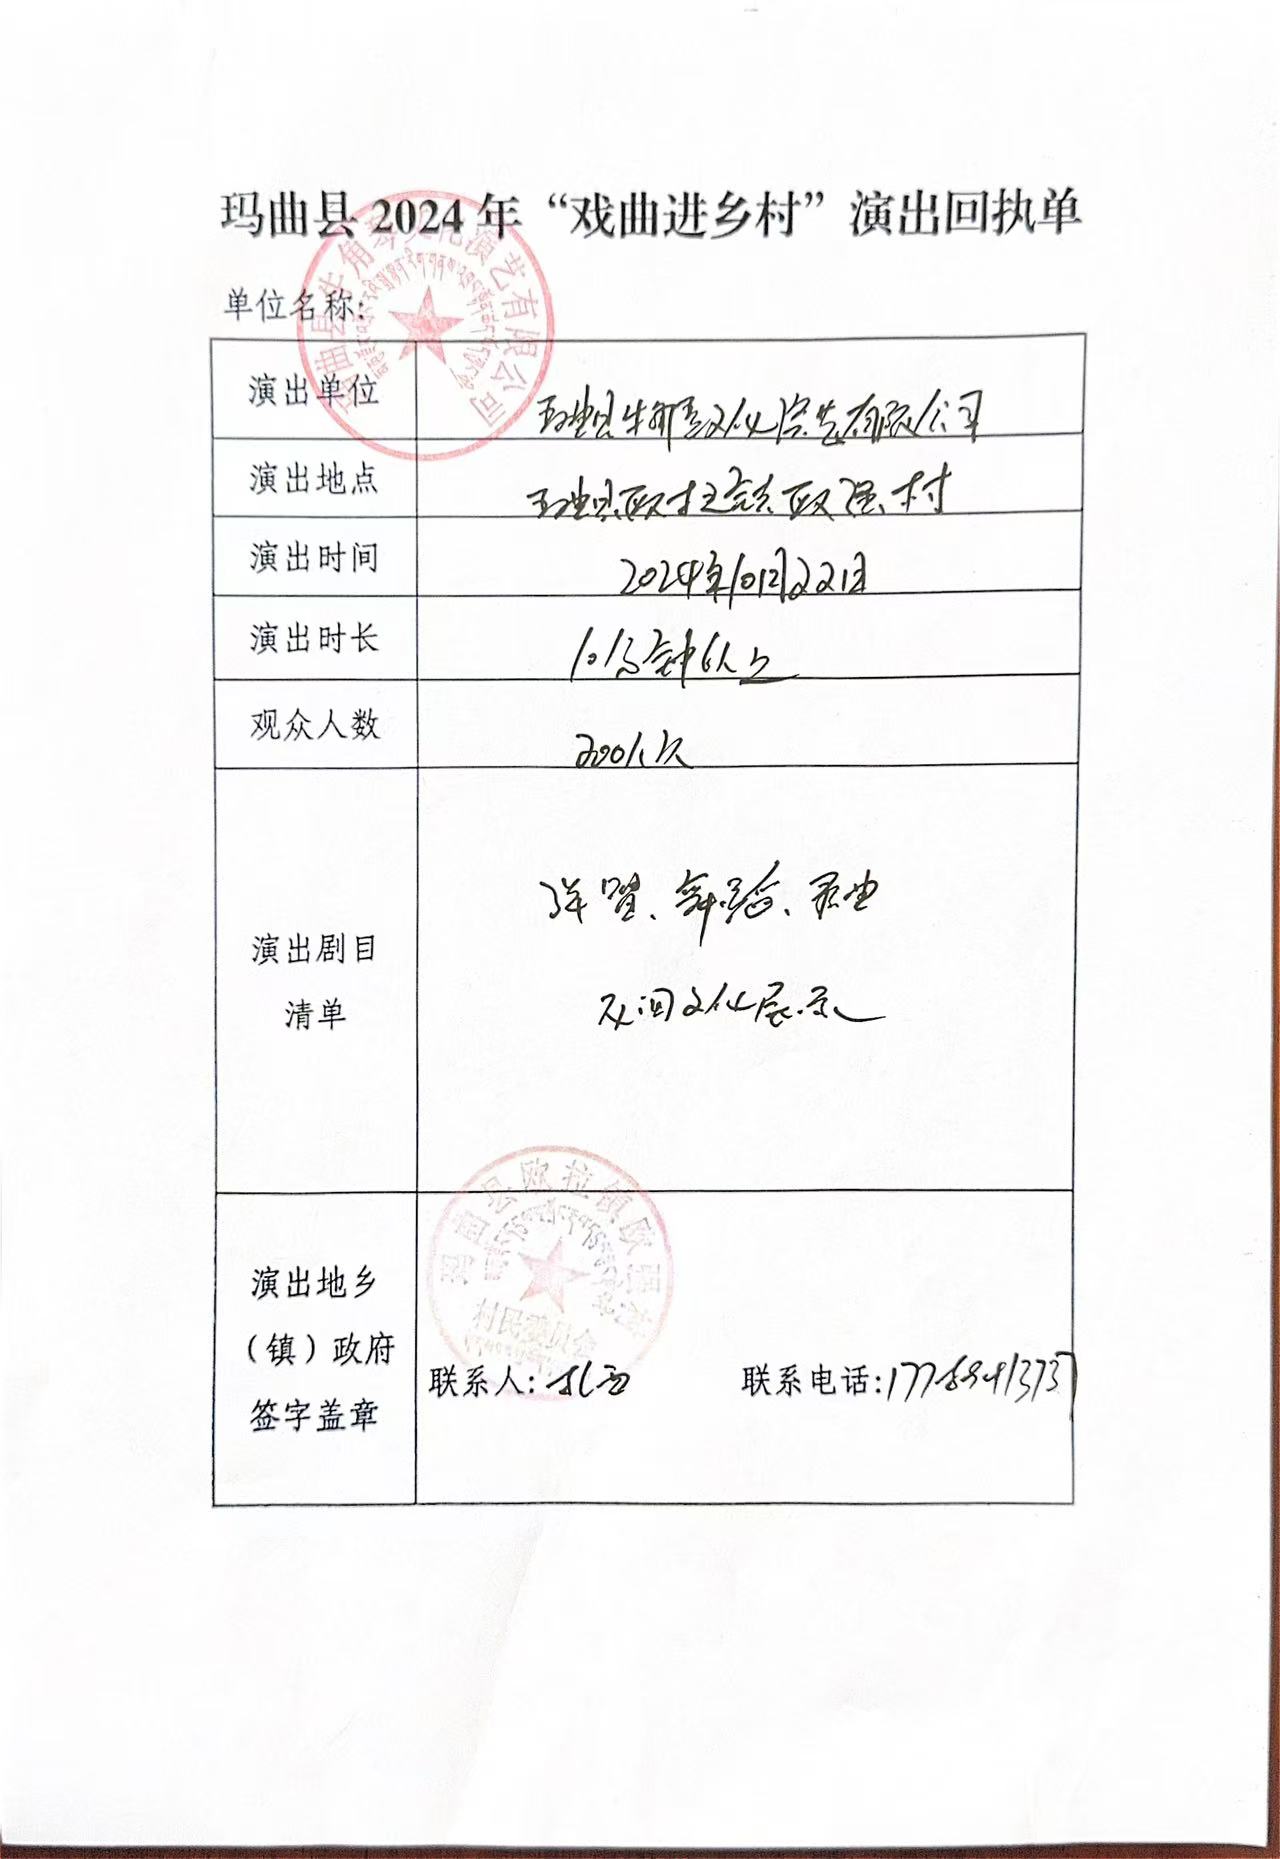 玛曲县2024年“戏曲进乡村”演出回执单
单位名称:
演出单位
玛曲县牛角琴文化演艺有限公司
演出地点
玛曲县欧拉镇欧强村
演出时间
2024年10月22日
演出时长
分钟以上
观众人数
200人次
演出剧目
清单
弹唱、舞蹈、
民间文化展示
玛曲县欧拉镇欧强村
村民委员会
演出地乡
（镇）政府
签字盖章
联系人:
联系电话:
玛曲县牛角琴文化演艺有限公司